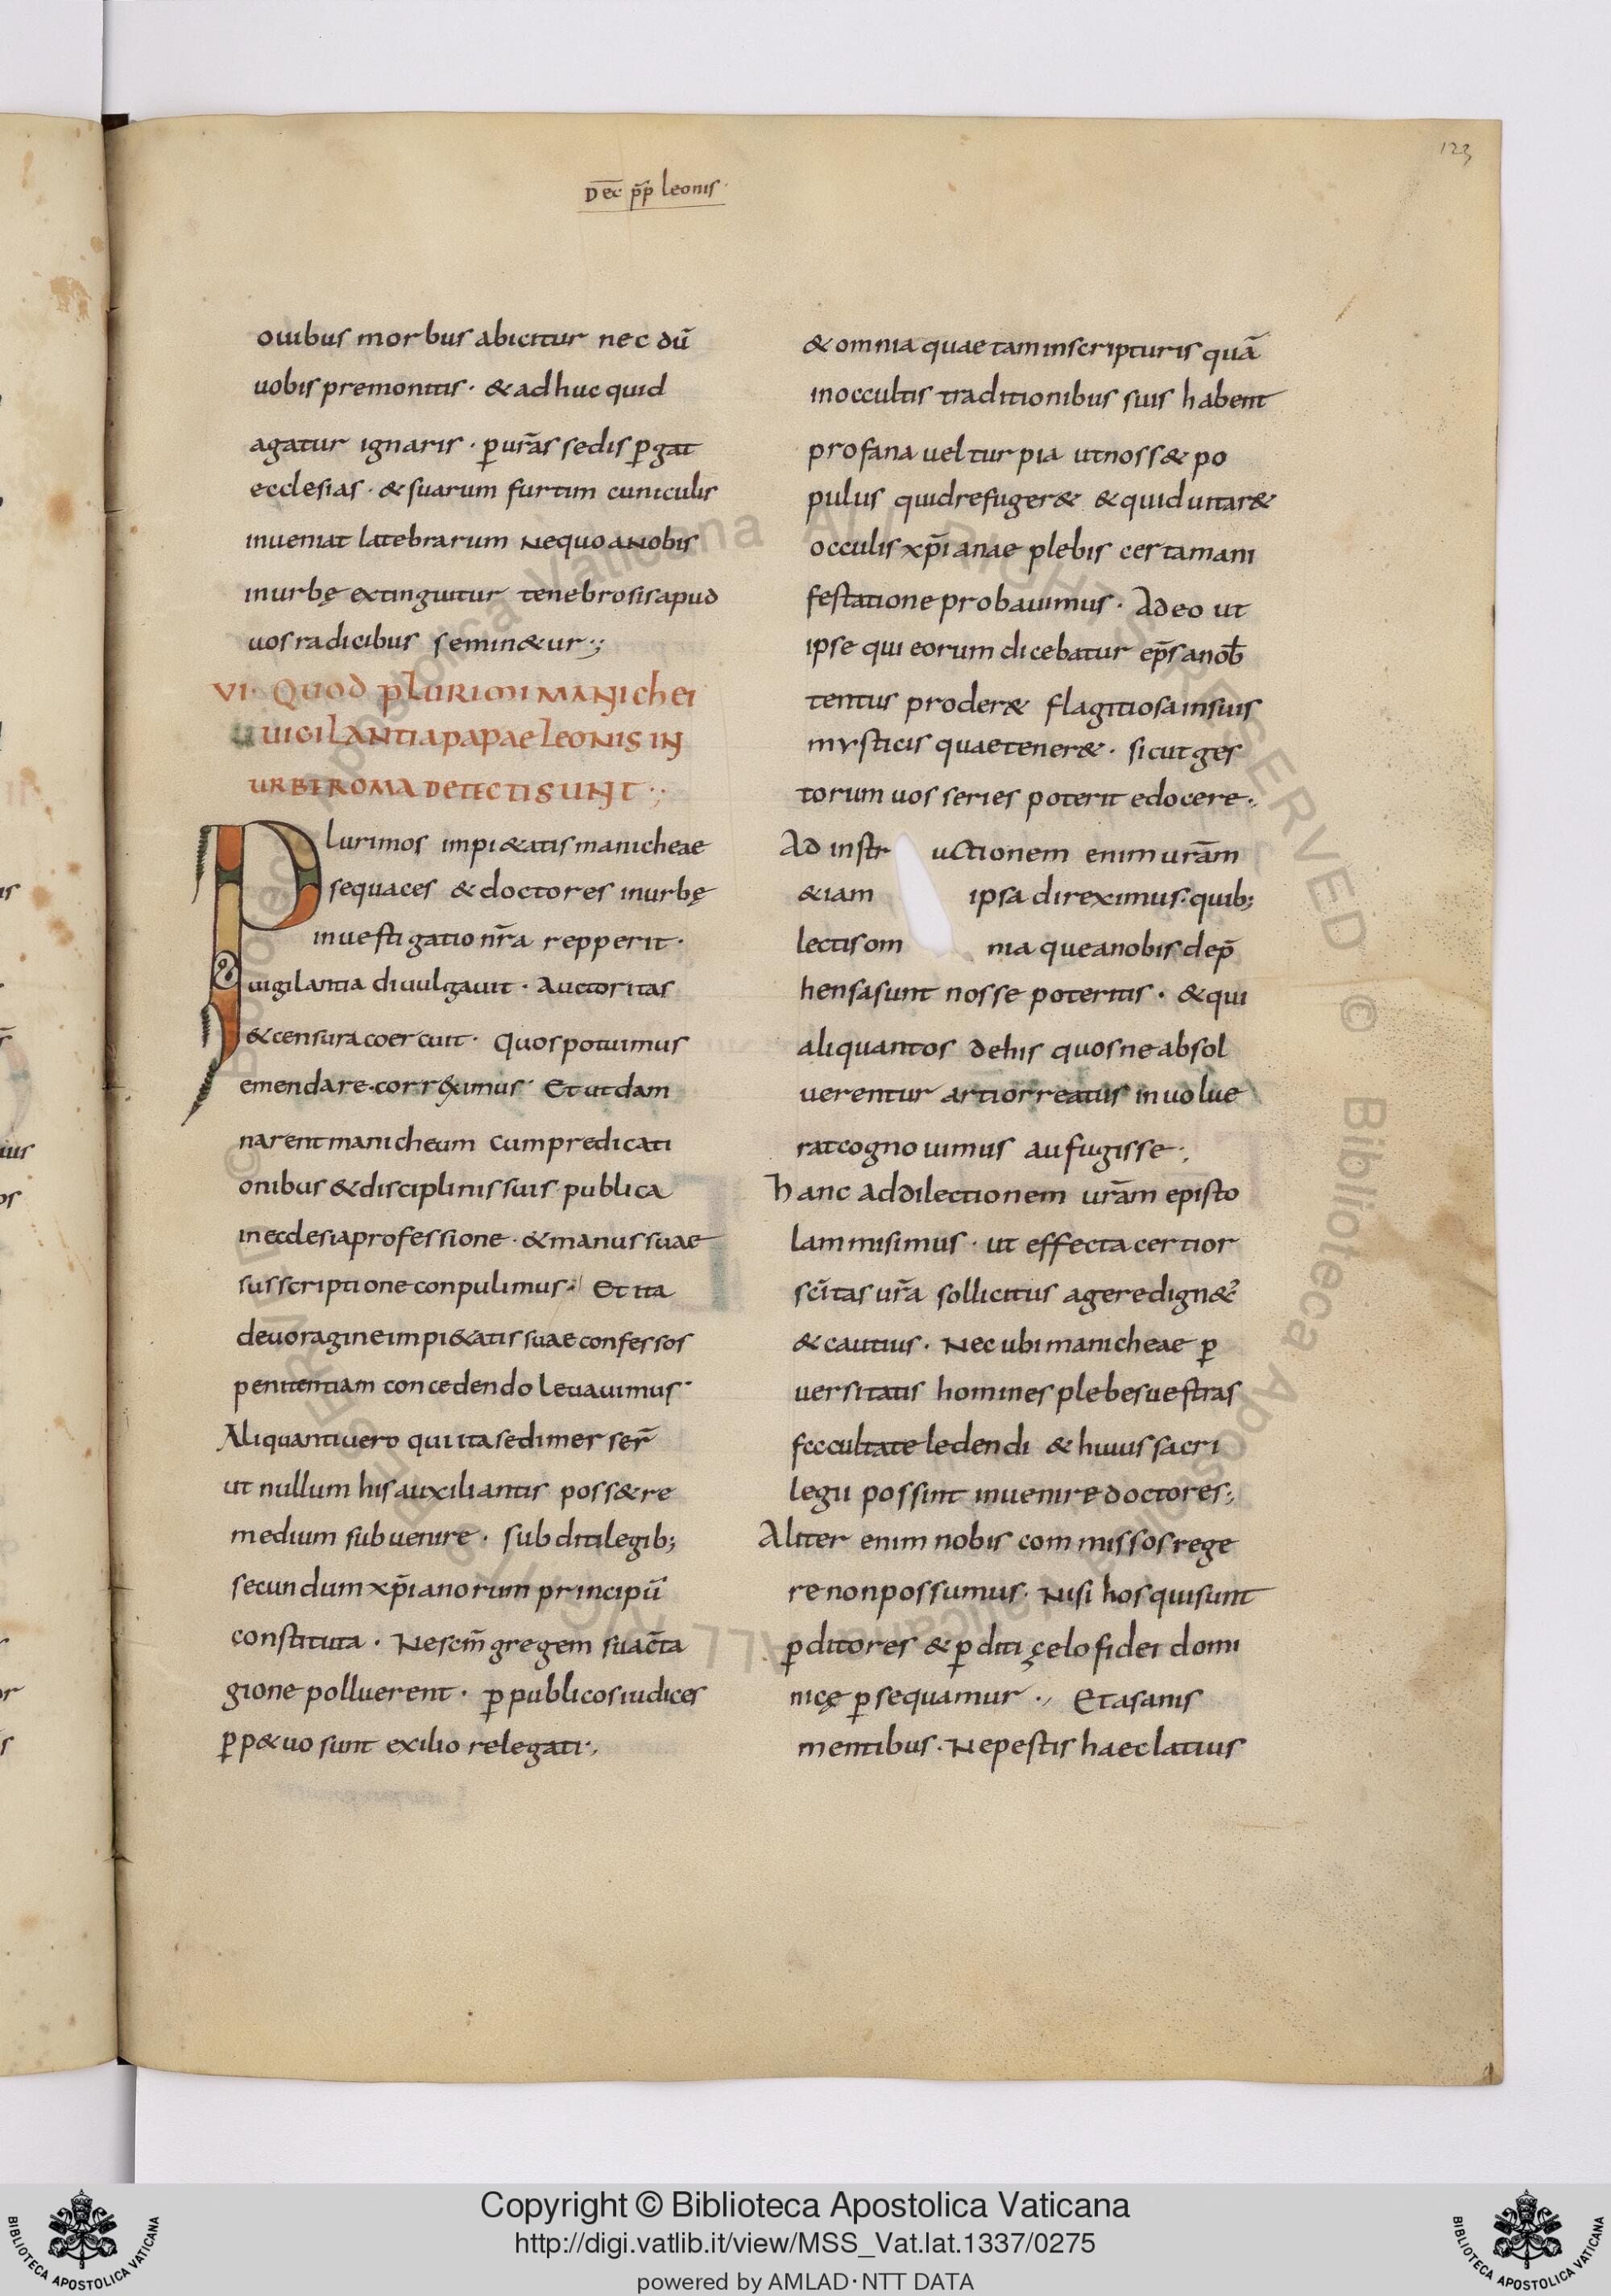 123
Dec̄ pp̄ leonis
ouibus morbus abicitur nec dū
uobis premonitis · & adhuc quid
agatur ignaris · p̱ urās sedis p̱gat
ecclesias · & suarum furtim cuniculis
inueniat latebrarum Nequo a Nobis
inurbę extinguitur tenebrosis apud
uos radicibus semin&ur ·;
VI· Quod plurimi manichei
uigilantia papae leonis in
urbe roma detecti sunt ·;
Plurimos impi&atis manicheae
sequaces & doctores inurbę
inuestigatio nr̄a repperit ·
uigilantia diuulgauit · Auctoritas
& censura coercuit · Quos potuimus
emendare · corr&ximus · Et ut dam
narent manicheum cum predicati
onibus & disciplinis suis publica
in ecclesia professione · & manus suae
susscriptione conpulimus · Et ita
deuoragine impi&atis suae confessos
penitentiam concedendo leuauimus ·
Aliquanti uero qui ita se dimerser̄
ut nullum his auxiliantis poss& re
medium subuenire · subditi legib;
secundum xp̄ianorum principū
constituta · Ne scm̄ gregem sua c̄ta
gione polluerent · p̱ publicos iudices
p̱p&uo sunt exilio relegati ·,
& omnia quae tam in scripturis quā
in occultis traditionibus suis habent
profana uel turpia ut noss& po
pulus quid refuger& & quid uitar&
occulis xp̄ianae plebis certa mani
festatione probauimus · Adeo ut
ipse qui eorum dicebatur ep̄s a nob̄
tentus proder& flagitiosa in suis
mysticis quae tener& · sicut ges
torum uos series poterit edocere ·,
Ad instr uctionem enim urām
&iam ipsa direximus · quib;
lectis om nia que a nobis dep̄
hensa sunt nosse poteritis · & qui
aliquantos de his quos ne absol
uerentur artior reatus inuolue
rat cognouimus aufugisse ·,
hanc ad dilectionem urām episto
lam misimus · ut effecta certior
sc̄itas ur̄a sollicitus agere dign&
& cautius · Nec ubi manicheae p̱
uersitatis homines plebes uestras
feccultate ledendi & huius sacri
legii possint inuenire doctores ·,
Aliter enim nobis commissos rege
re non possumus · Nisi hos qui sunt
p̱ditores & p̱diti çelo fidei domi
nicę p̱sequamur ·, Et a sanis
mentibus · Ne pestis haec latius
Copyright © Biblioteca Apostolica Vaticana
http://digi.vatlib.it/view/MSS_Vat.lat.1337/0275
powered by AMLAD·NTT DATA